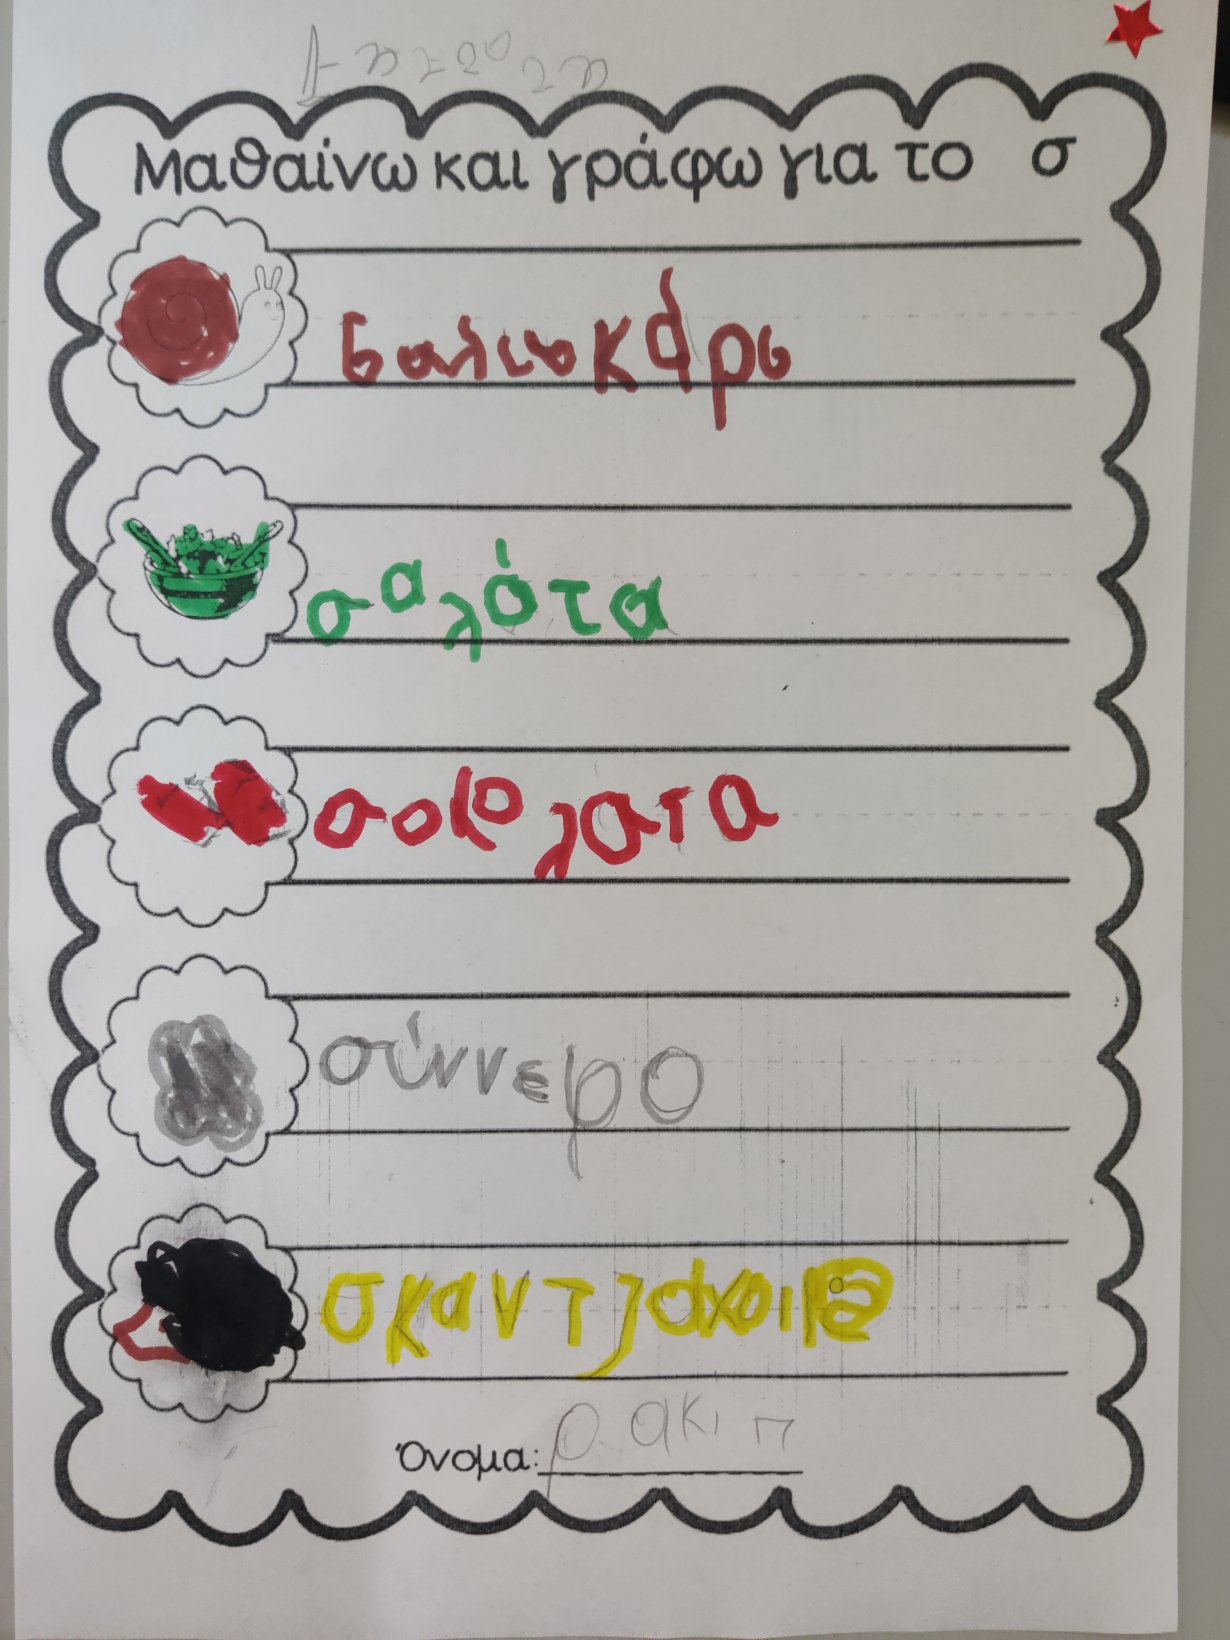 Μαθαίνω και γράφω για το σ
σαλιακάρι
σαλάτα
σοκολατα
σύννεφο
σκαντζόχοιρο
Όνομα: ρ ακι π